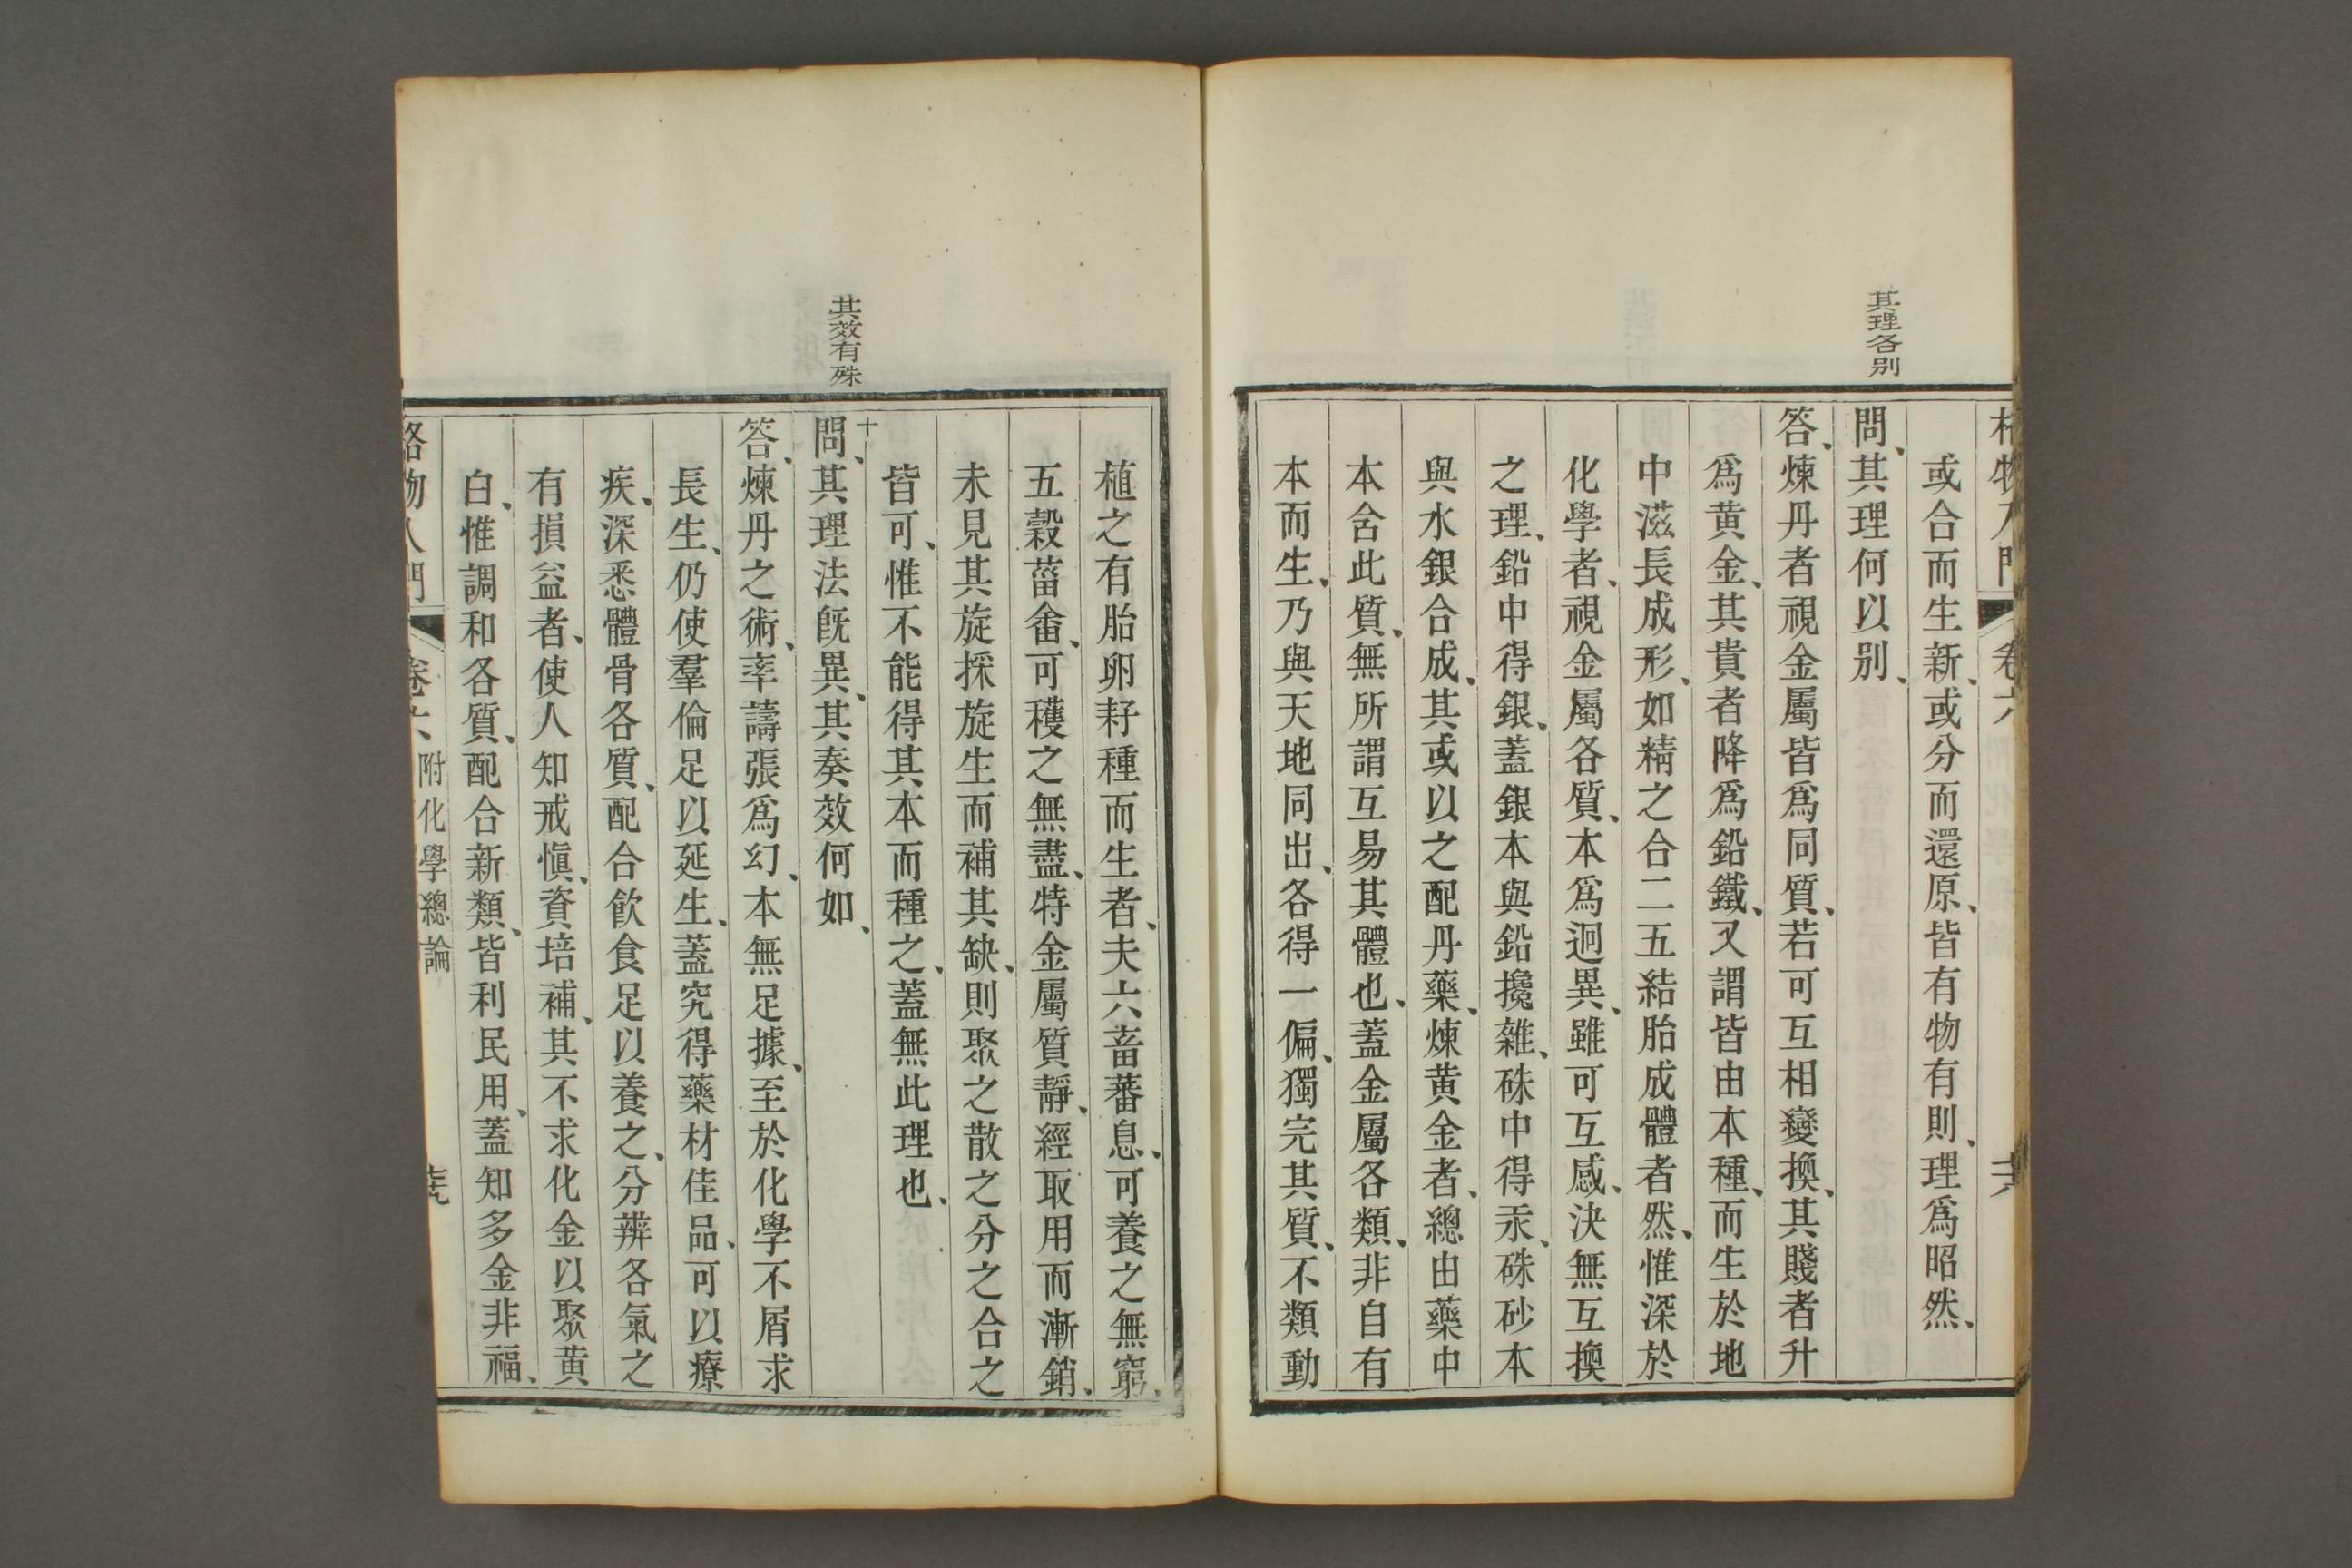 格物入門
卷六
其理各別
或合而生新、或分而還原、皆有物有則、理爲昭然、
問、其理何以別、
答、煉丹者視金屬皆爲同質、若可互相變換、其賤者升
爲黄金、其貴者降爲鉛鐵、又謂皆由本種、而生於地
中滋長成形、如精之合二五結胎成體者然、惟深於
化學者、視金屬各質、本爲迥異、雖可互感、決無互換
之理、鉛中得銀、蓋銀本與鉛攙雜、硃中得汞、硃砂本
與水銀合成、其或以之配丹藥、煉黄金者、總由藥中
本含此質、無所謂互易其體也、蓋金屬各類、非自有
本而生、乃與天地同出、各得一偏、獨完其質、不類動
植之有胎卵耔種而生者、夫六畜蕃息、可養之無窮、
五穀菑畬、可穫之無盡、特金屬質靜、經取用而漸銷、
未見其旋採旋生而補其缺、則聚之散之分之合之
皆可、惟不能得其本而種之、蓋無此理也、
其效有殊
十
問、其理法旣異、其奏效何如、
答、煉丹之術、率譸張爲幻、本無足據、至於化學不屑求
長生、仍使羣倫足以延生、蓋究得藥材佳品、可以療
疾、深悉體骨各質、配合飮食足以養之、分辨各氣之
有損益者、使人知戒愼、資培補、其不求化金以聚黄
白、惟調和各質、配合新類、皆利民用、蓋知多金非福、
格物入門
卷六
附化學總論